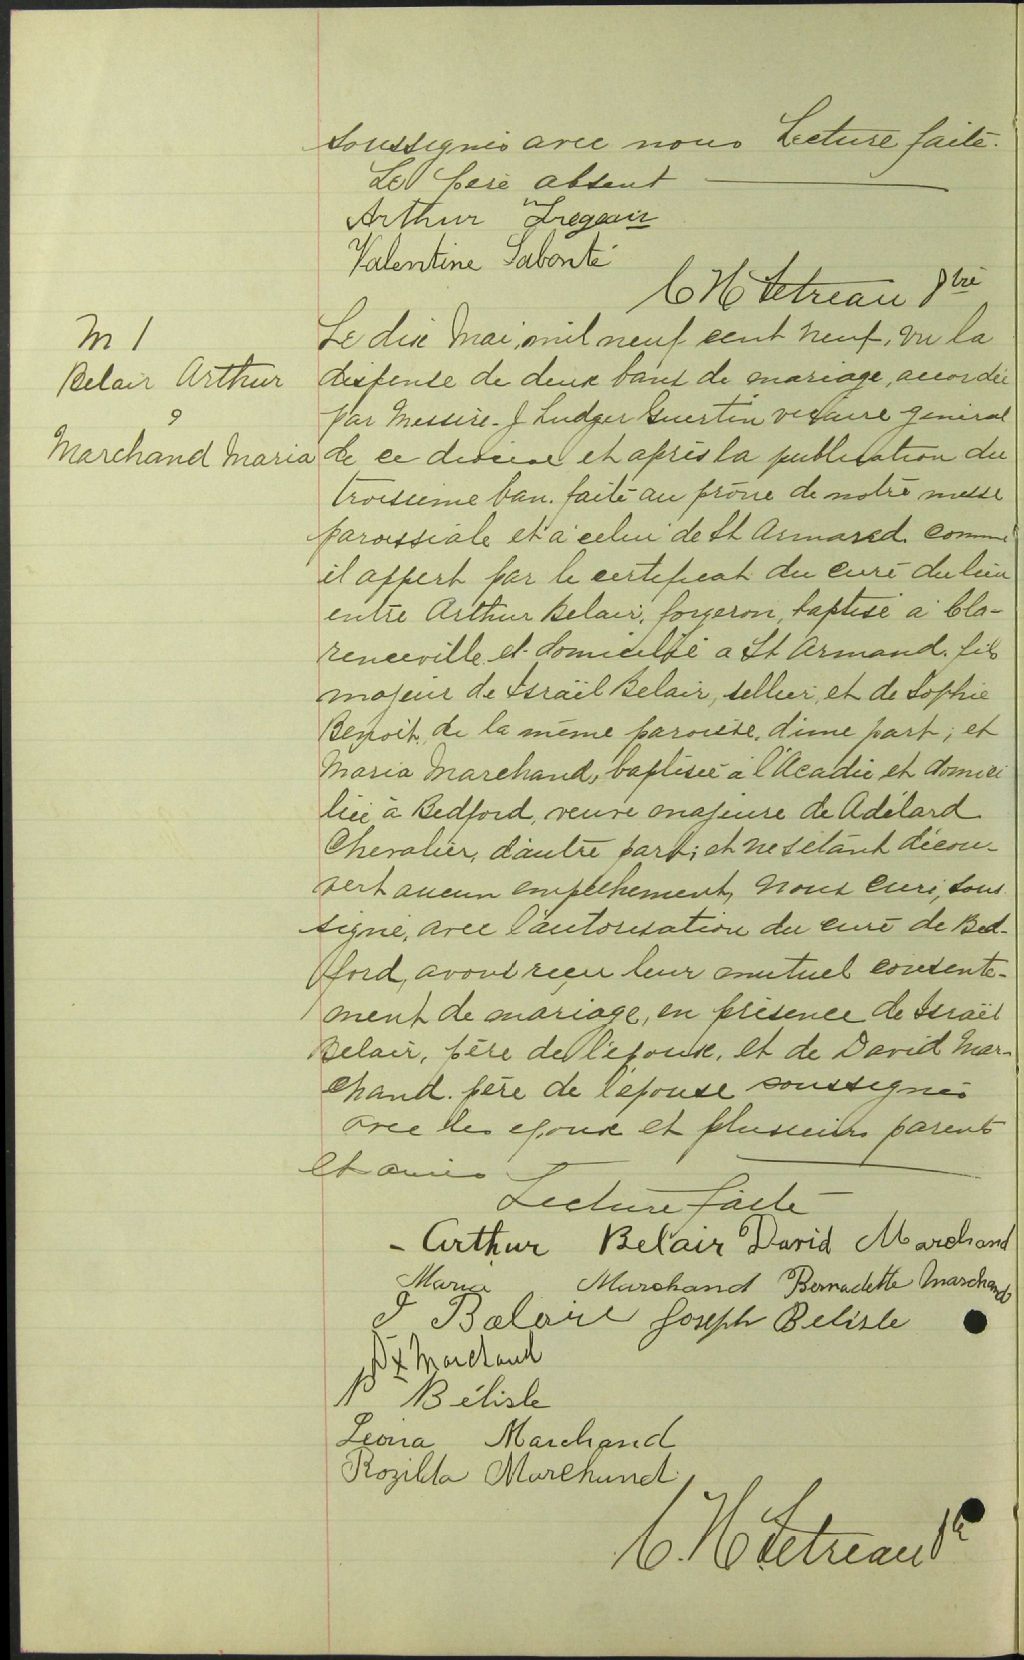 soussignés avec nous Lecture faite.
Le père absent
Arthur Tregeair
Valentine Labonté
C H Tetreau Ptre
M 1
Belair Arthur
&
Marchand Maria
Le dix Mai, mil neuf cent neuf, vu la
dispense de deux bans de mariage, accordée
par Messire J Ludger Guertin vicaire général
de ce diocèse et après la publication du
troisième ban. faite au prône de notre messe
paroissiale et à celui de St Armand. comme
il appert par le certificat du curé du lieu
entre Arthur Belair, forgeron, baptisé à Cla-
renceville et domicilié a St Armand. fils
majeur de Israël Belair, sellier, et de Sophie
Benoit, de la même paroisse, d'une part; et
Maria Marchand, baptisée à l'Acadie et domici
liée à Bedford, veuve majeure de Adélard
Chevalier, d'autre part; et ne s'étant décou-
vert aucun empêchement, Nous Curé, sous
signé, avec l'autorisation du curé de Bed-
ford, avons reçu leur mutuel consente-
ment de mariage, en présence de Israël
Belair, père de l'époux, et de David Mar-
chand. père de l'épouse soussignés
avec les epoux et plusieurs parents
et amis
Lecture faite
Arthur Belair David Marchand
Maria Marchand Bernadette Marchand
I Belair Joseph Belisle
Dx Marchand
P Bélisle
Leona Marchand
Rozilda Marchand
C. H Tetreau Ptre